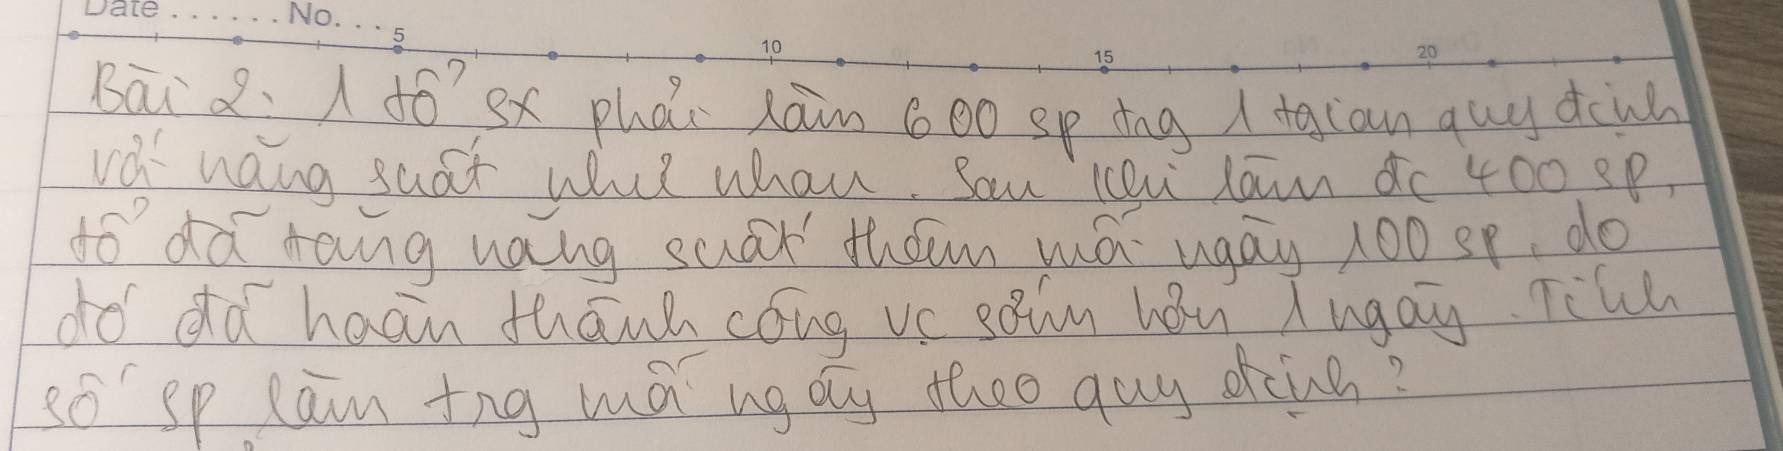 Date ....... No. ...
5 10 15 20
Bài 2: 1 tổ sx phải làm 600 sp tng 1 tgian quy định
với năng suất như nhau. Sau khi làm đc 400 sp,
tổ đã tăng năng suất thêm mỗi ngày 100 sp, do
đó đã hoàn thành công vc sớm hơn 1 ngày. Tính
số sp làm trng mỗi ngày theo quy định?